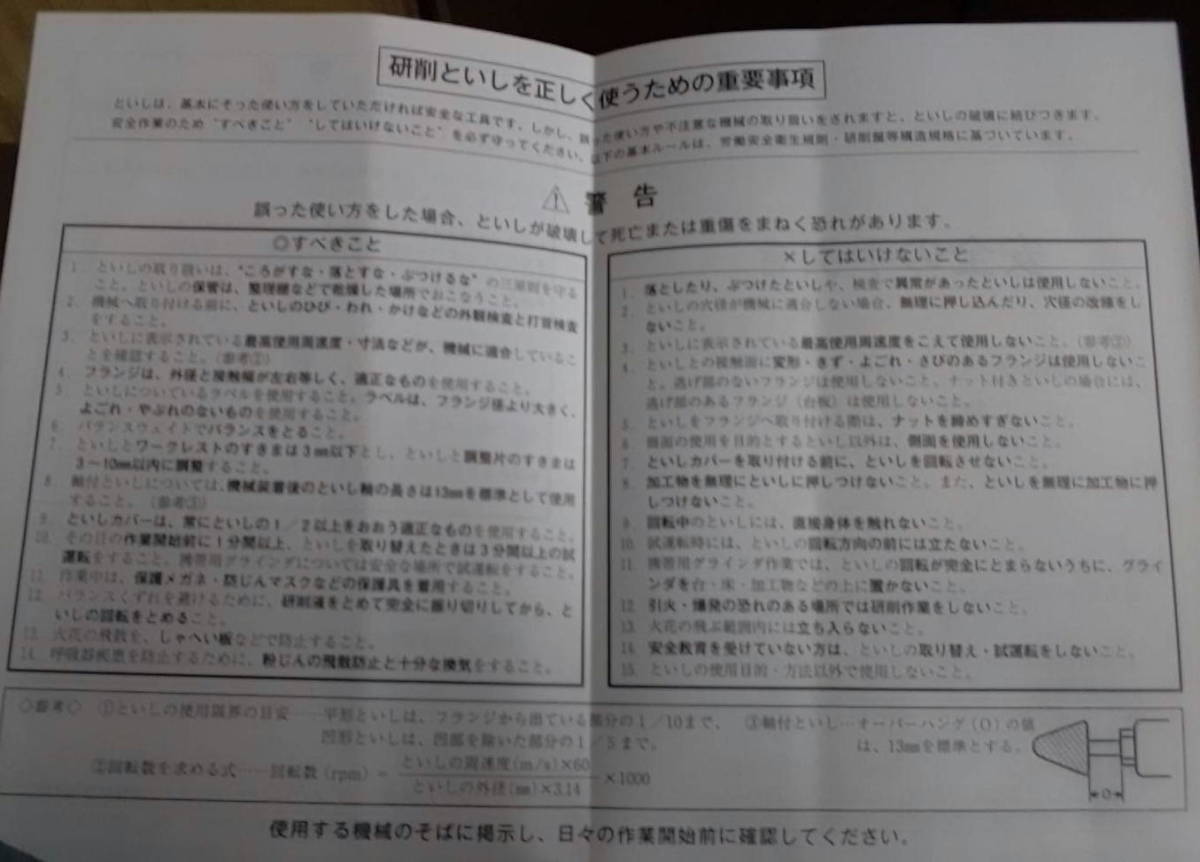 研削といしを正しく使うための重要事項
といしは、基本にそった使い方をしていただければ安全な工具です。しかし、誤った使い方や不注意な機械の取り扱いをされますと、といしの破壊に結びつきます。
安全作業のため"すべきこと" "してはいけないこと"を必ず守ってください。以下の基本ルールは、労働安全衛生規則・研削盤等構造規格に基づいています。
⚠ 警告
誤った使い方をした場合、といしが破壊して死亡または重傷をまねく恐れがあります。
◎すべきこと
1. といしの取り扱いは、"ころがすな・落とすな・ぶつけるな"の三原則を守る
こと。といしの保管は、整理棚などで乾燥した場所でおこなうこと。
2. 機械へ取り付ける前に、といしのひび・われ・かけなどの外観検査と打音検査
をすること。
3. といしに表示されている最高使用周速度・寸法などが、機械に適合しているこ
とを確認すること。(参考②)
4. フランジは、外径と接触幅が左右等しく、適正なものを使用すること。
5. といしについているラベルを使用すること。ラベルは、フランジ径より大きく、
よごれ・やぶれのないものを使用すること。
6. バランスウェイトでバランスをとること。
7. といしとワークレストのすきまは3㎜以下とし、といしと調整片のすきまは
3〜10㎜以内に調整すること。
8. 軸付といしについては、機械装着後のといし軸の長さは13㎜を標準として使用
すること。(参考③)
9. といしカバーは、常にといしの1/2以上をおおう適正なものを使用すること。
10. その日の作業開始前に1分間以上、といしを取り替えたときは3分間以上の試
運転をすること。携帯用グラインダについては安全な場所で試運転をすること。
11. 作業中は、保護メガネ・防じんマスクなどの保護具を着用すること。
12. バランスくずれを避けるために、研削液をとめて完全に振り切りしてから、と
いしの回転をとめること。
13. 火花の飛散を、しゃへい板などで防止すること。
14. 呼吸器疾患を防止するために、粉じんの飛散防止と十分な換気をすること。
×してはいけないこと
1. 落としたり、ぶつけたといしや、検査で異常があったといしは使用しないこと。
2. といしの穴径が機械に適合しない場合、無理に押し込んだり、穴径の改修をし
ないこと。
3. といしに表示されている最高使用周速度をこえて使用しないこと。(参考②)
4. といしとの接触面に変形・きず・よごれ・さびのあるフランジは使用しないこ
と。逃げ部のないフランジは使用しないこと、ナット付きといしの場合には、
逃げ部のあるフランジ(台板)は使用しないこと。
5. といしをフランジへ取り付ける際は、ナットを締めすぎないこと。
6. 側面の使用を目的とするといし以外は、側面を使用しないこと。
7. といしカバーを取り付ける前に、といしを回転させないこと。
8. 加工物を無理にといしに押しつけないこと。また、といしを無理に加工物に押
しつけないこと。
9. 回転中のといしには、直接身体を触れないこと。
10. 試運転時には、といしの回転方向の前には立たないこと。
11. 携帯用グラインダ作業では、といしの回転が完全にとまらないうちに、グライ
ンダを台・床・加工物などの上に置かないこと。
12. 引火・爆発の恐れのある場所では研削作業をしないこと。
13. 火花の飛ぶ範囲内には立ち入らないこと。
14. 安全教育を受けていない方は、といしの取り替え・試運転をしないこと。
15. といしの使用目的・方法以外で使用しないこと。
◇参考◇ ①といしの使用限界の目安……平形といしは、フランジから出ている部分の1/10まで、
凹形といしは、凹部を除いた部分の1/5まで。
②回転数を求める式……回転数(rpm)=といしの周速度(m/s)×60
といしの外径(㎜)×3.14
×1000
③軸付といし…オーバーハング(O)の値
は、13㎜を標準とする。
O
使用する機械のそばに掲示し、日々の作業開始前に確認してください。